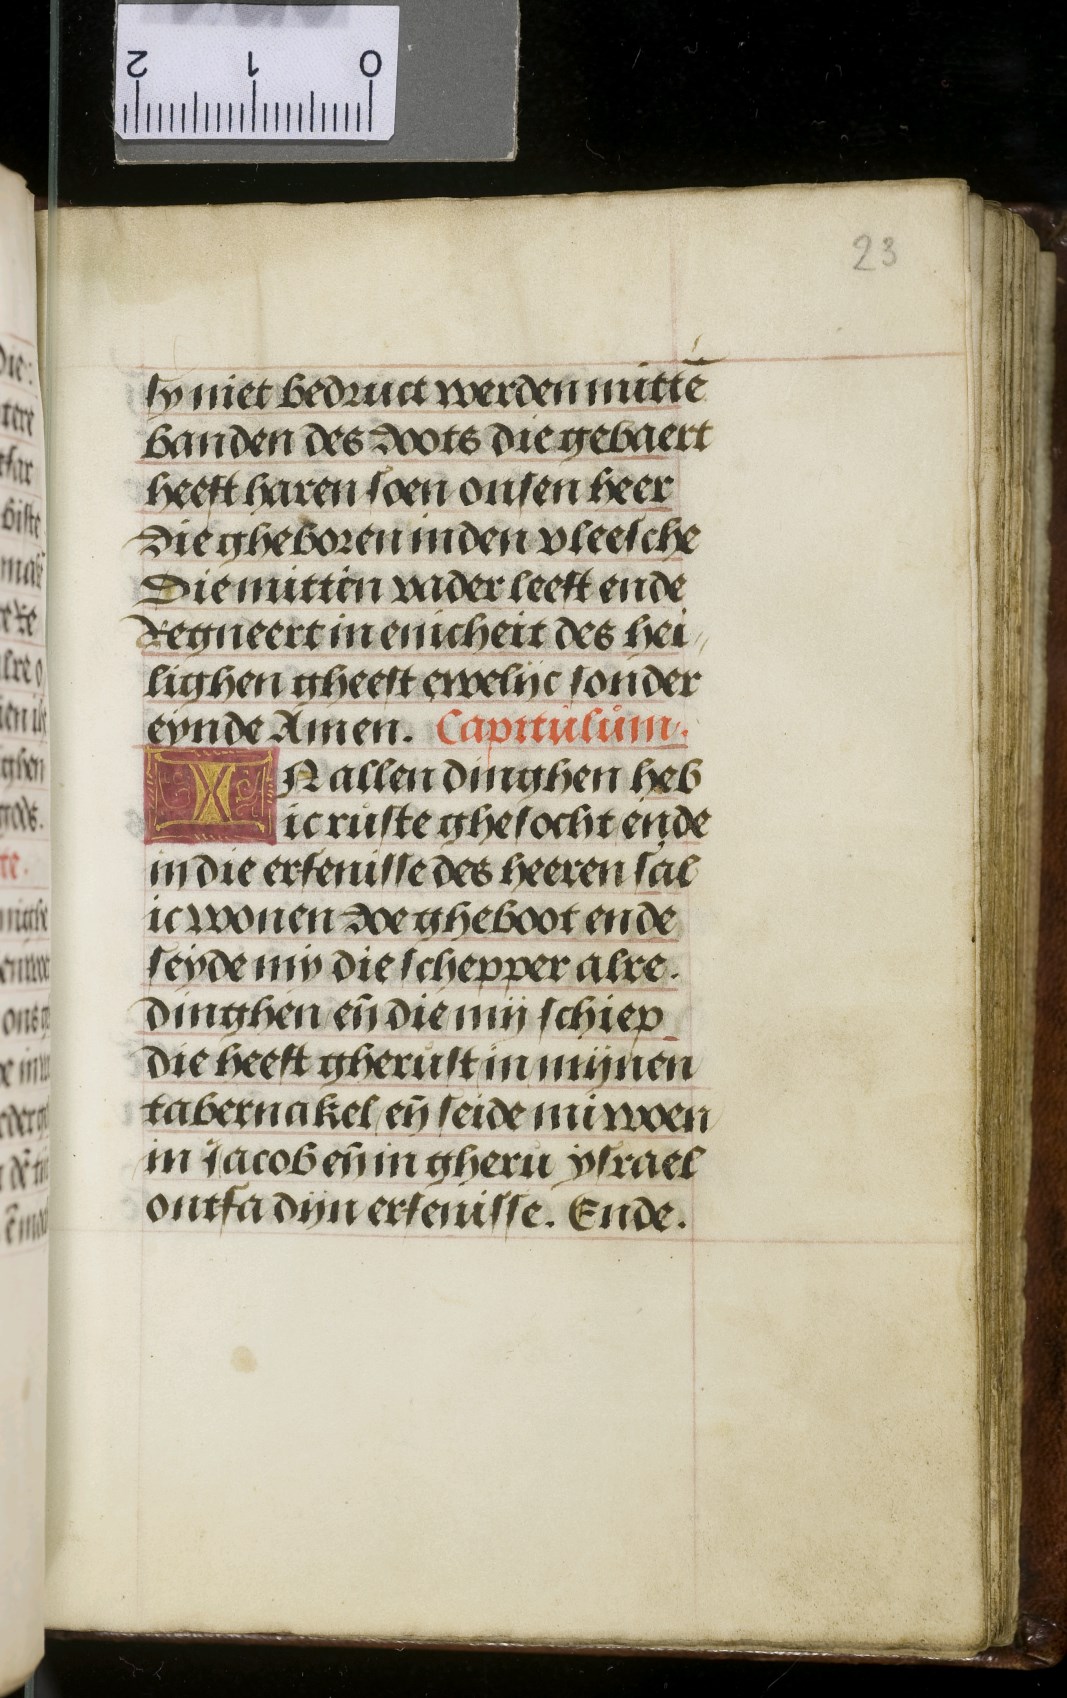 23
sy niet bedruct werden mittē
banden des doots die gebaert
heeft haren soen onsen heer
die gheboren in den vleesche
Die mitten vader leeft ende
Regneert in enicheit des hei
lighen gheest ewelijc sonder
eynde Amen. Capitulum.
IN allen dinghen heb
ic ruste ghesocht ende
in die erfenisse des heeren sal
ic wonen doe gheboot ende
seyde my die schepper alre.
dinghen eñ die mij schiep
die heeft gherust in mijnen
tabernakel eñ seide mi woen
in Jacob eñ in gheru ysrael
ontfa dijn erfenisse. Ende.
2 1 0